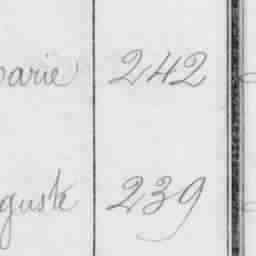 arie 242
guste 239